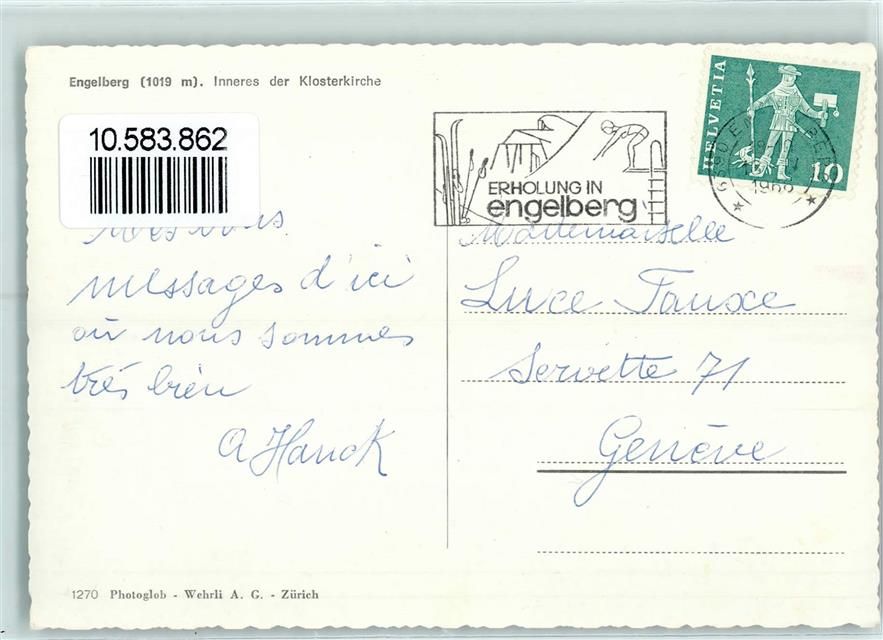 Engelberg (1019 m). Inneres der Klosterkirche
10.583.862
messages d'ici
où nous sommes
très bien
A Hauck
1270 Photoglob - Wehrli A. G. - Zürich
ERHOLUNG IN
engelberg
HELVETIA
10
6390 ENGELBERG
1966
Mademoiselle
Luce Fauxe
Servette 71
Genève